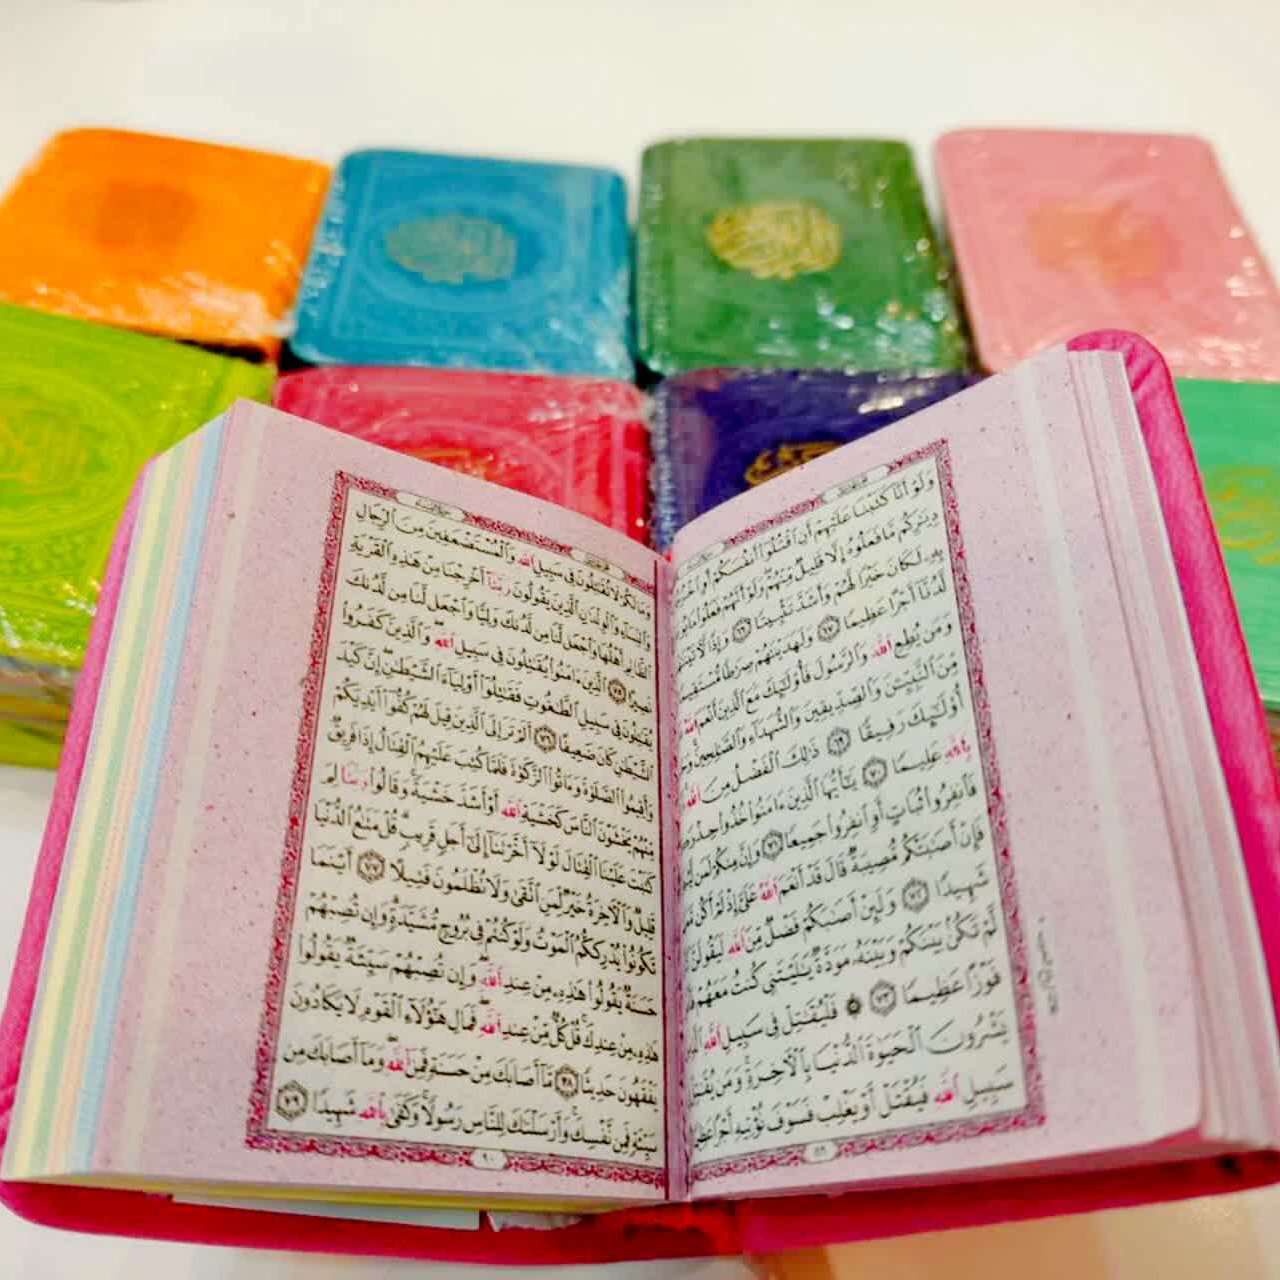 وَلَوْ أَنَّا كَتَبْنَا عَلَيْهِمْ أَنِ ٱقْتُلُوٓا۟ أَنفُسَكُمْ أَوِ
دِيَٰرِكُم مَّا فَعَلُوهُ إِلَّا قَلِيلٌ مِّنْهُمْ وَلَوْ أَنَّهُمْ فَعَلُوا۟ مَا
بِهِۦ لَكَانَ خَيْرًا لَّهُمْ وَأَشَدَّ تَثْبِيتًا ٦٦ وَإِذًا
لَّدُنَّآ أَجْرًا عَظِيمًا ٦٧ وَلَهَدَيْنَٰهُمْ صِرَٰطًا مُّسْتَقِيمًا
وَمَن يُطِعِ ٱللَّهَ وَٱلرَّسُولَ فَأُو۟لَٰٓئِكَ مَعَ ٱلَّذِينَ أَنْعَمَ ٱللَّهُ
مِّنَ ٱلنَّبِيِّـۧنَ وَٱلصِّدِّيقِينَ وَٱلشُّهَدَآءِ وَٱلصَّٰلِحِينَ
أُو۟لَٰٓئِكَ رَفِيقًا ٦٩ ذَٰلِكَ ٱلْفَضْلُ مِنَ ٱللَّهِ
بِٱللَّهِ عَلِيمًا ٧٠ يَٰٓأَيُّهَا ٱلَّذِينَ ءَامَنُوا۟ خُذُوا۟ حِذْرَ
فَٱنفِرُوا۟ ثُبَاتٍ أَوِ ٱنفِرُوا۟ جَمِيعًا ٧١ وَإِنَّ مِنكُمْ لَمَن
فَإِنْ أَصَٰبَتْكُم مُّصِيبَةٌ قَالَ قَدْ أَنْعَمَ ٱللَّهُ عَلَىَّ إِذْ لَمْ أَكُن
شَهِيدًا ٧٢ وَلَئِنْ أَصَٰبَكُمْ فَضْلٌ مِّنَ ٱللَّهِ لَيَقُولَنَّ
لَّمْ تَكُنۢ بَيْنَكُمْ وَبَيْنَهُۥ مَوَدَّةٌ يَٰلَيْتَنِى كُنتُ مَعَهُمْ
فَوْزًا عَظِيمًا ٧٣ فَلْيُقَٰتِلْ فِى سَبِيلِ ٱللَّهِ
يَشْرُونَ ٱلْحَيَوٰةَ ٱلدُّنْيَا بِٱلْـَٔاخِرَةِ وَمَن
سَبِيلِ ٱللَّهِ فَيُقْتَلْ أَوْ يَغْلِبْ فَسَوْفَ نُؤْتِيهِ أَجْرًا
٨٩
وَمَا لَكُمْ لَا تُقَٰتِلُونَ فِى سَبِيلِ ٱللَّهِ وَٱلْمُسْتَضْعَفِينَ مِنَ ٱلرِّجَالِ
وَٱلنِّسَآءِ وَٱلْوِلْدَٰنِ ٱلَّذِينَ يَقُولُونَ رَبَّنَآ أَخْرِجْنَا مِنْ هَٰذِهِ ٱلْقَرْيَةِ
ٱلظَّالِمِ أَهْلُهَا وَٱجْعَل لَّنَا مِن لَّدُنكَ وَلِيًّا وَٱجْعَل لَّنَا مِن لَّدُنكَ
نَصِيرًا ٧٥ ٱلَّذِينَ ءَامَنُوا۟ يُقَٰتِلُونَ فِى سَبِيلِ ٱللَّهِ وَٱلَّذِينَ كَفَرُوا۟
يُقَٰتِلُونَ فِى سَبِيلِ ٱلطَّٰغُوتِ فَقَٰتِلُوٓا۟ أَوْلِيَآءَ ٱلشَّيْطَٰنِ إِنَّ كَيْدَ
ٱلشَّيْطَٰنِ كَانَ ضَعِيفًا ٧٦ أَلَمْ تَرَ إِلَى ٱلَّذِينَ قِيلَ لَهُمْ كُفُّوٓا۟ أَيْدِيَكُمْ
وَأَقِيمُوا۟ ٱلصَّلَوٰةَ وَءَاتُوا۟ ٱلزَّكَوٰةَ فَلَمَّا كُتِبَ عَلَيْهِمُ ٱلْقِتَالُ إِذَا فَرِيقٌ
مِّنْهُمْ يَخْشَوْنَ ٱلنَّاسَ كَخَشْيَةِ ٱللَّهِ أَوْ أَشَدَّ خَشْيَةً وَقَالُوا۟ رَبَّنَا لِمَ
كَتَبْتَ عَلَيْنَا ٱلْقِتَالَ لَوْلَآ أَخَّرْتَنَآ إِلَىٰٓ أَجَلٍ قَرِيبٍ قُلْ مَتَٰعُ ٱلدُّنْيَا
قَلِيلٌ وَٱلْـَٔاخِرَةُ خَيْرٌ لِّمَنِ ٱتَّقَىٰ وَلَا تُظْلَمُونَ فَتِيلًا ٧٧ أَيْنَمَا
تَكُونُوا۟ يُدْرِككُّمُ ٱلْمَوْتُ وَلَوْ كُنتُمْ فِى بُرُوجٍ مُّشَيَّدَةٍ وَإِن تُصِبْهُمْ
حَسَنَةٌ يَقُولُوا۟ هَٰذِهِۦ مِنْ عِندِ ٱللَّهِ وَإِن تُصِبْهُمْ سَيِّئَةٌ يَقُولُوا۟
هَٰذِهِۦ مِنْ عِندِكَ قُلْ كُلٌّ مِّنْ عِندِ ٱللَّهِ فَمَالِ هَٰٓؤُلَآءِ ٱلْقَوْمِ لَا يَكَادُونَ
يَفْقَهُونَ حَدِيثًا ٧٨ مَّآ أَصَابَكَ مِنْ حَسَنَةٍ فَمِنَ ٱللَّهِ وَمَآ أَصَابَكَ مِن
سَيِّئَةٍ فَمِن نَّفْسِكَ وَأَرْسَلْنَٰكَ لِلنَّاسِ رَسُولًا وَكَفَىٰ بِٱللَّهِ شَهِيدًا ٧٩
٩٠